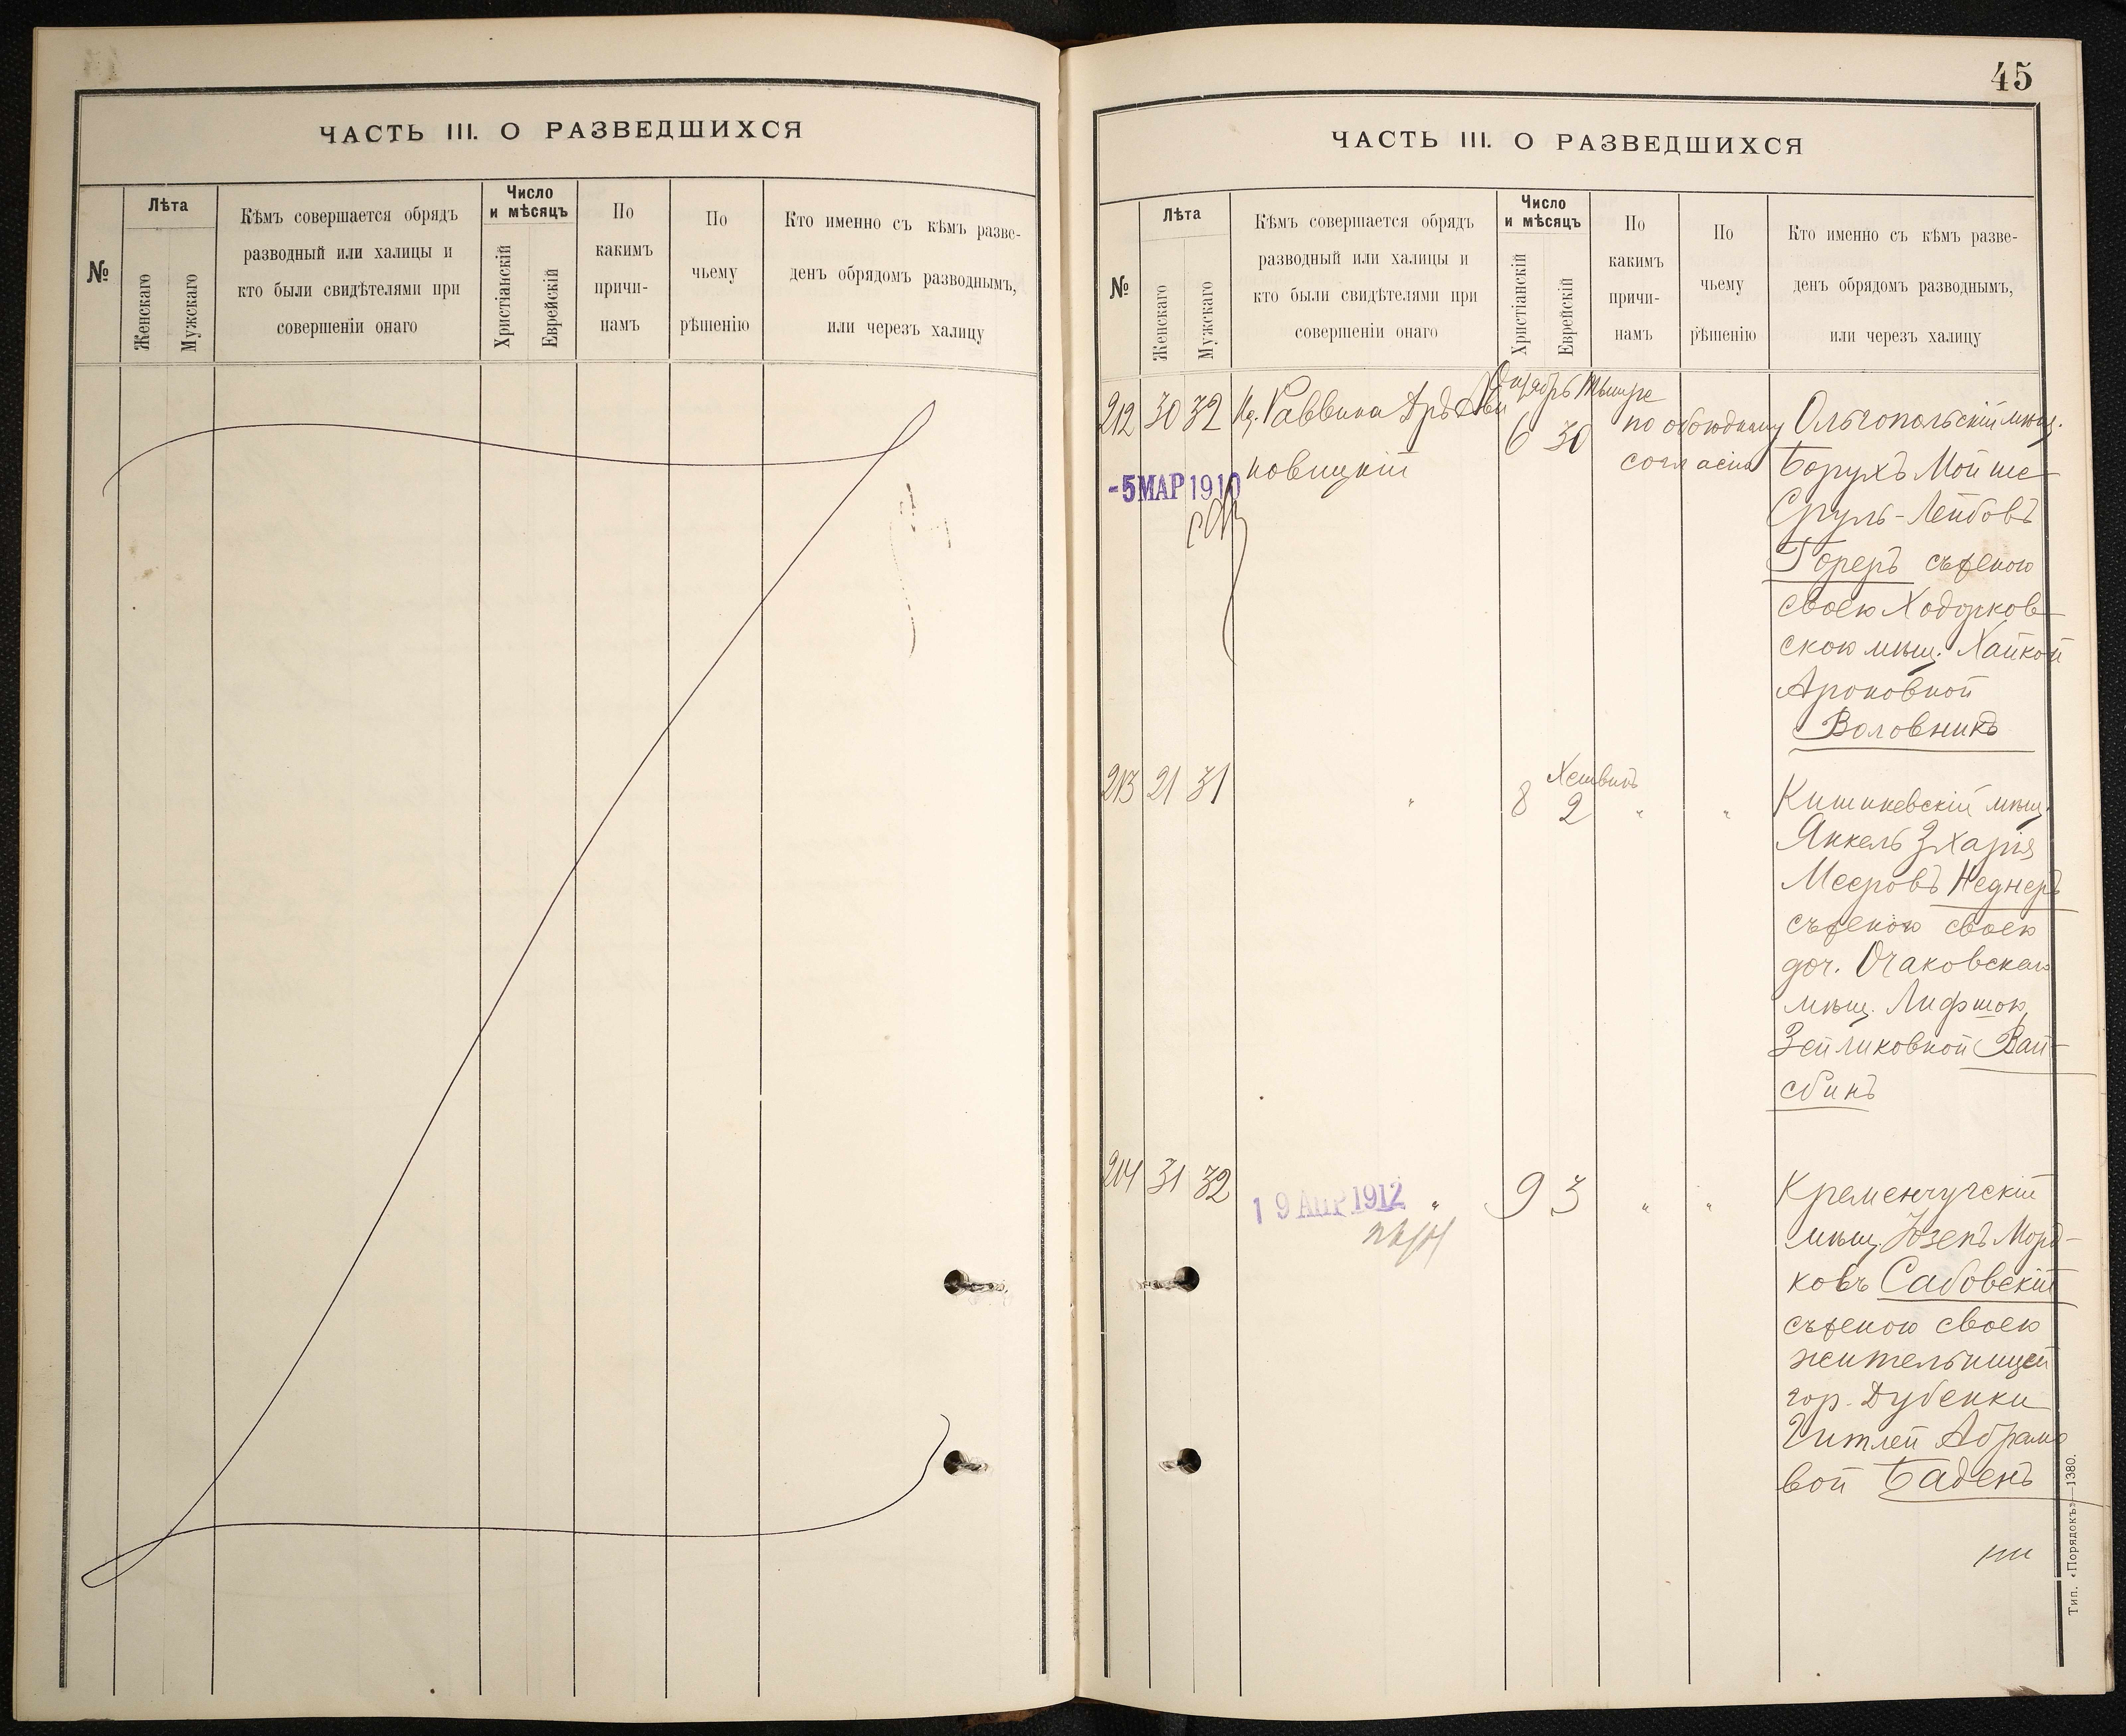 ЧАСТЬ III. О РАЗВЕДШИХСЯ
№
Лѣта
Женскаго
Мужскаго
Кѣмъ совершается обрядъ
разводный или халицы и
кто были свидѣтелями при
совершеніи онаго
Число
и мѣсяцъ
Христіанскій
Еврейскій
По
какимъ
причи-
намъ
По
чьему
рѣшенію
Кто именно съ кѣмъ разве-
денъ обрядомъ разводнымъ,
или черезъ халицу
45
ЧАСТЬ III. О РАЗВЕДШИХСЯ
№
Лѣта
Женскаго
Мужскаго
Кѣмъ совершается обрядъ
разводный или халицы и
кто были свидѣтелями при
совершеніи онаго
Число
и мѣсяцъ
Христіанскій
Еврейскій
По
какимъ
причи-
намъ
По
чьему
рѣшенію
Кто именно съ кѣмъ разве-
денъ обрядомъ разводнымъ,
или черезъ халицу
212 30 32
Раввина
новицкій
-5 МАР 1910
Октябрь Тышре
6 30
по обоюдному
согласію
Ольгопольскій мѣщ.
Борухъ Мойше
Сруль-Лейбовъ
Гореръ съ женою
своею Ходорков-
скою мѣщ. Хайкой
Ароновной
Воловникъ
213 21 31
"
Хешвинъ
8 2
" "
Кишиневскій мѣщ.
Янкель Зхарія
Мееровъ Неднеръ
съ женою своею
доч. Очаковскаго
мѣщ. Лифшою
Зейликовной Вай-
сбинъ
214 31 32
19 АПР 1912
"
9 3
" "
Кременчугскій
мѣщ. Юзепъ Морд-
ковъ Садовскій
съ женою своею
жительницей
гор. Дубенки
Гитлей Абрамо
вой Баденъ
Тип. «Порядокъ»—1380.